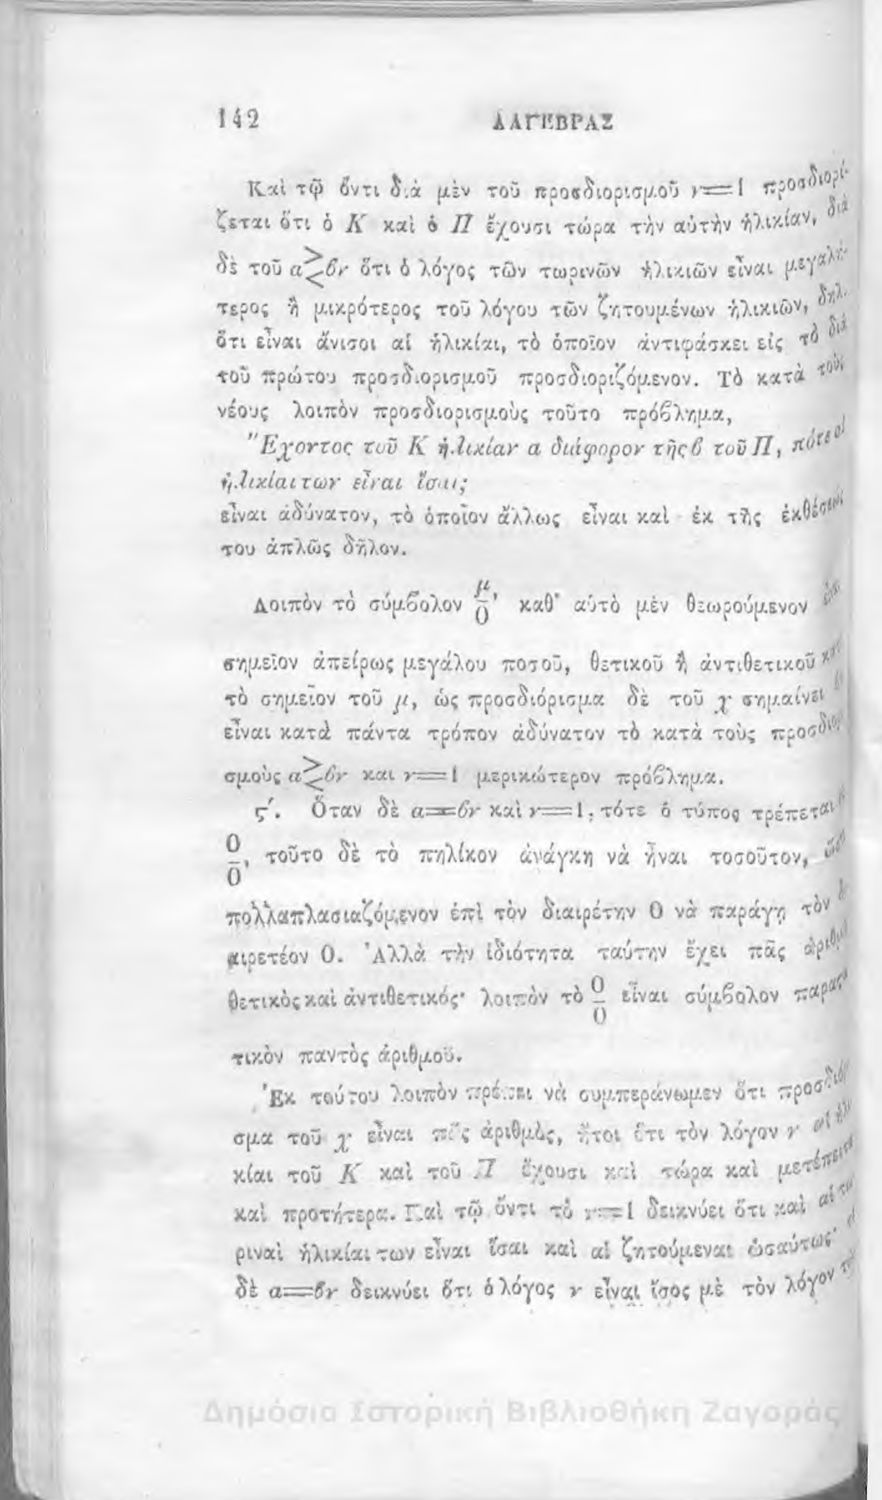 142 ΑΛΓΕΒΡΑΣ
Καὶ τῷ ὄντι διὰ μὲν τοῦ προσδιορισμοῦ ν=1 προσδιορί-
ζεται ὅτι ὁ Κ καὶ ὁ Π ἔχουσι τώρα τὴν αὐτὴν ἡλικίαν, διὰ
δὲ τοῦ α≷βν ὅτι ὁ λόγος τῶν τωρινῶν ἡλικιῶν εἶναι μεγαλή-
τερος ἢ μικρότερος τοῦ λόγου τῶν ζητουμένων ἡλικιῶν, δηλ.
ὅτι εἶναι ἄνισοι αἱ ἡλικίαι, τὸ ὁποῖον ἀντιφάσκει εἰς τὸ διὰ
τοῦ πρώτου προσδιορισμοῦ προσδιοριζόμενον. Τὸ κατὰ τοὺς
νέους λοιπὸν προσδιορισμοὺς τοῦτο πρόβλημα,
Ἔχοντος τοῦ Κ ἡλικίαν α διάφορον τῆς β τοῦ Π, πότε αἱ
ἡλικίαι των εἶναι ἴσαι;
εἶναι ἀδύνατον, τὸ ὁποῖον ἄλλως εἶναι καὶ ἐκ τῆς ἐκθέσεως
του ἁπλῶς δῆλον.
Λοιπὸν τὸ σύμβολον μ/0, καθ' αὑτὸ μὲν θεωρούμενον
σημεῖον ἀπείρως μεγάλου ποσοῦ, θετικοῦ ἢ ἀντιθετικοῦ
τὸ σημεῖον τοῦ μ, ὡς προσδιόρισμα δὲ τοῦ χ σημαίνει
εἶναι κατὰ πάντα τρόπον ἀδύνατον τὸ κατὰ τοὺς προσδιορι
σμοὺς α≷βν και ν=1 μερικώτερον πρόβλημα.
ϛ'. Ὅταν δὲ α=βν καὶ ν=1, τότε ὁ τύπος τρέπεται
0/0, τοῦτο δὲ τὸ πηλίκον ἀνάγκη νὰ ἦναι τοσοῦτον,
πολλαπλασιαζόμενον ἐπὶ τὸν διαιρέτην 0 νὰ παράγῃ τὸν
αιρετέον 0. Ἀλλὰ τὴν ἰδιότητα ταύτην ἔχει πᾶς ἀριθμ
θετικὸς καὶ ἀντιθετικός· λοιπὸν τὸ 0/0 εἶναι σύμβολον παρασ
τικὸν παντὸς ἀριθμοῦ.
Ἐκ τούτου λοιπὸν πρέπει νὰ συμπεράνωμεν ὅτι προσδιόρ
σμα τοῦ χ εἶναι πᾶς ἀριθμὸς, ἤτοι ὅτι τὸν λόγον ν αἱ ἡλι
κίαι τοῦ Κ καὶ τοῦ Π ἔχουσι καὶ τώρα καὶ μετέπειτα
καὶ προτήτερα. Καὶ τῷ ὄντι τὸ ν=1 δεικνύει ὅτι καὶ αἱ τω
ριναὶ ἡλικίαι των εἶναι ἴσαι καὶ αἱ ζητούμεναι ὡσαύτως·
δὲ α=βν δεικνύει ὅτι ὁ λόγος ν εἶναι ἴσος μὲ τὸν λόγον
Δημόσια Ιστορική Βιβλιοθήκη Ζαγοράς